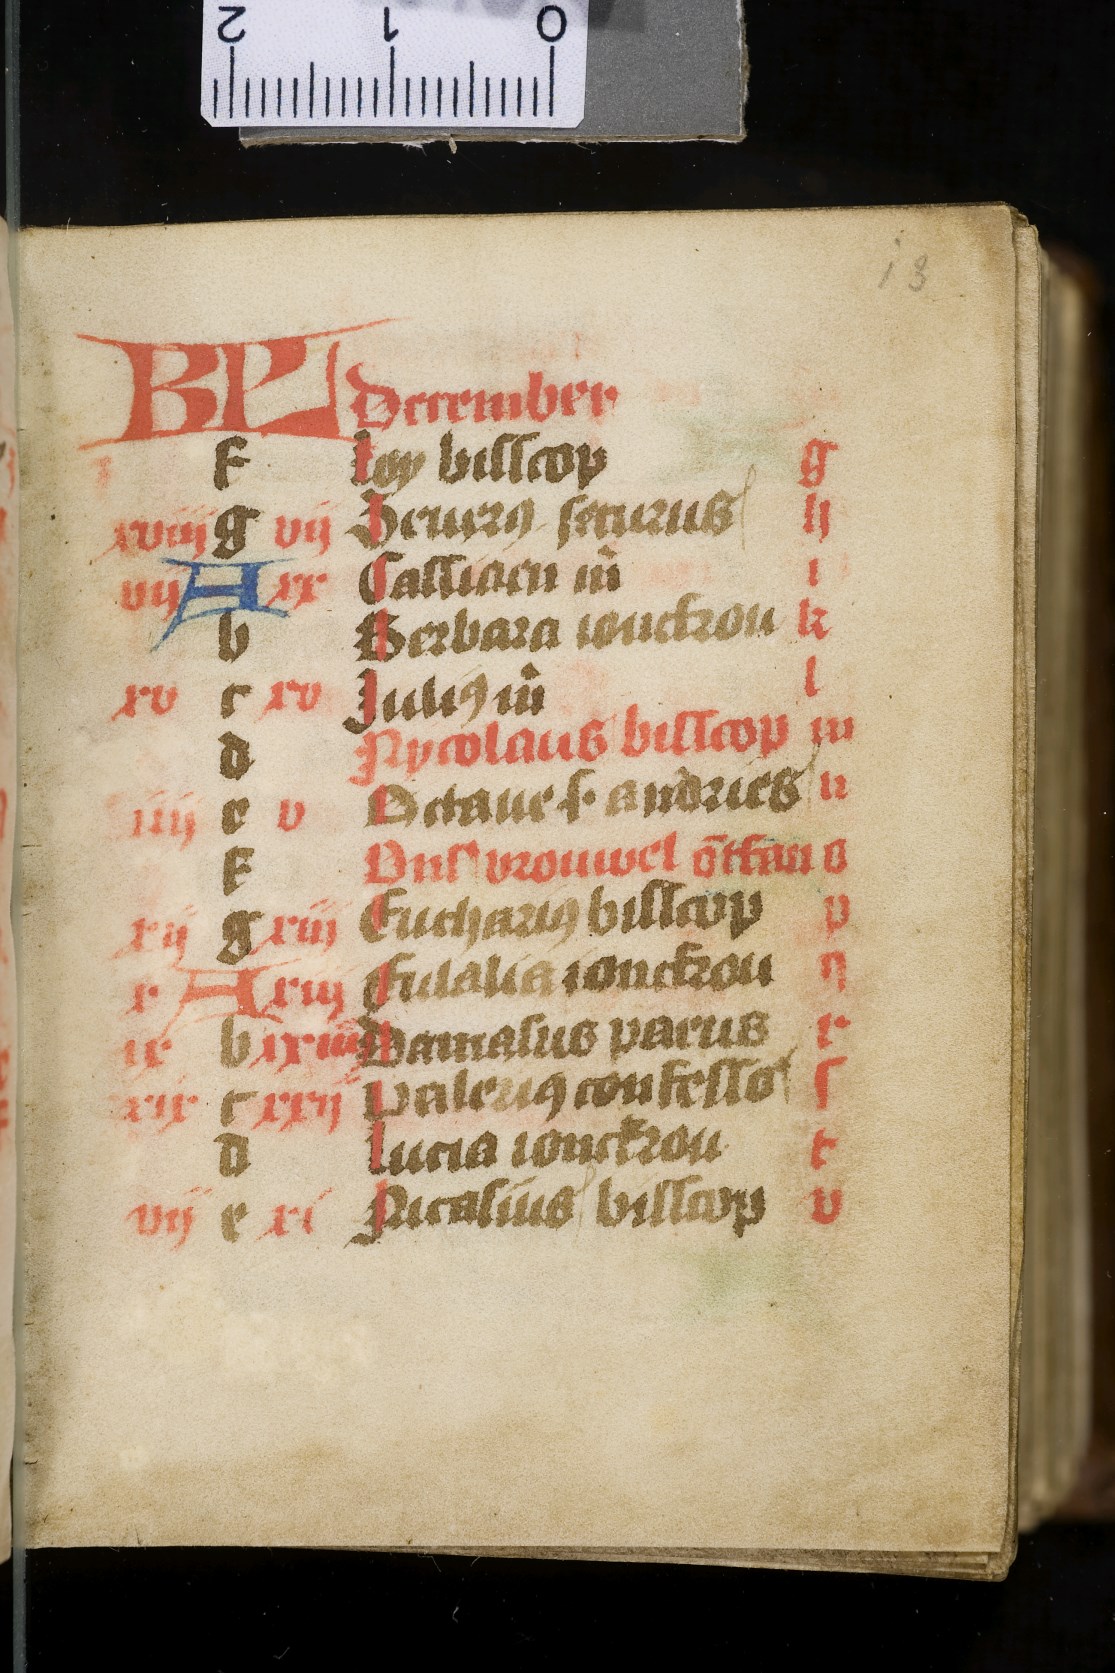 2 1 0
i3
KL December
f loy bisscop g
xviij g vij Seuerꝯ securus h
vij A xx Cassiaen m̄ i
b Berbara ionckrou k
xv c xv Juliꝯ m̄ l
d Nycolaus bisscop m
iiij e v Octaue s. andries n
f Uns vrouwel ōtfan o
xij g xiij Euchariꝯ bisscop p
x A xiij Eulalia ionckrou q
ix b Damasus paeus r
xix c xxij Valeriꝯ confesso s
d Lucia ionckrou t
vij e xi Nicasius bisscop v